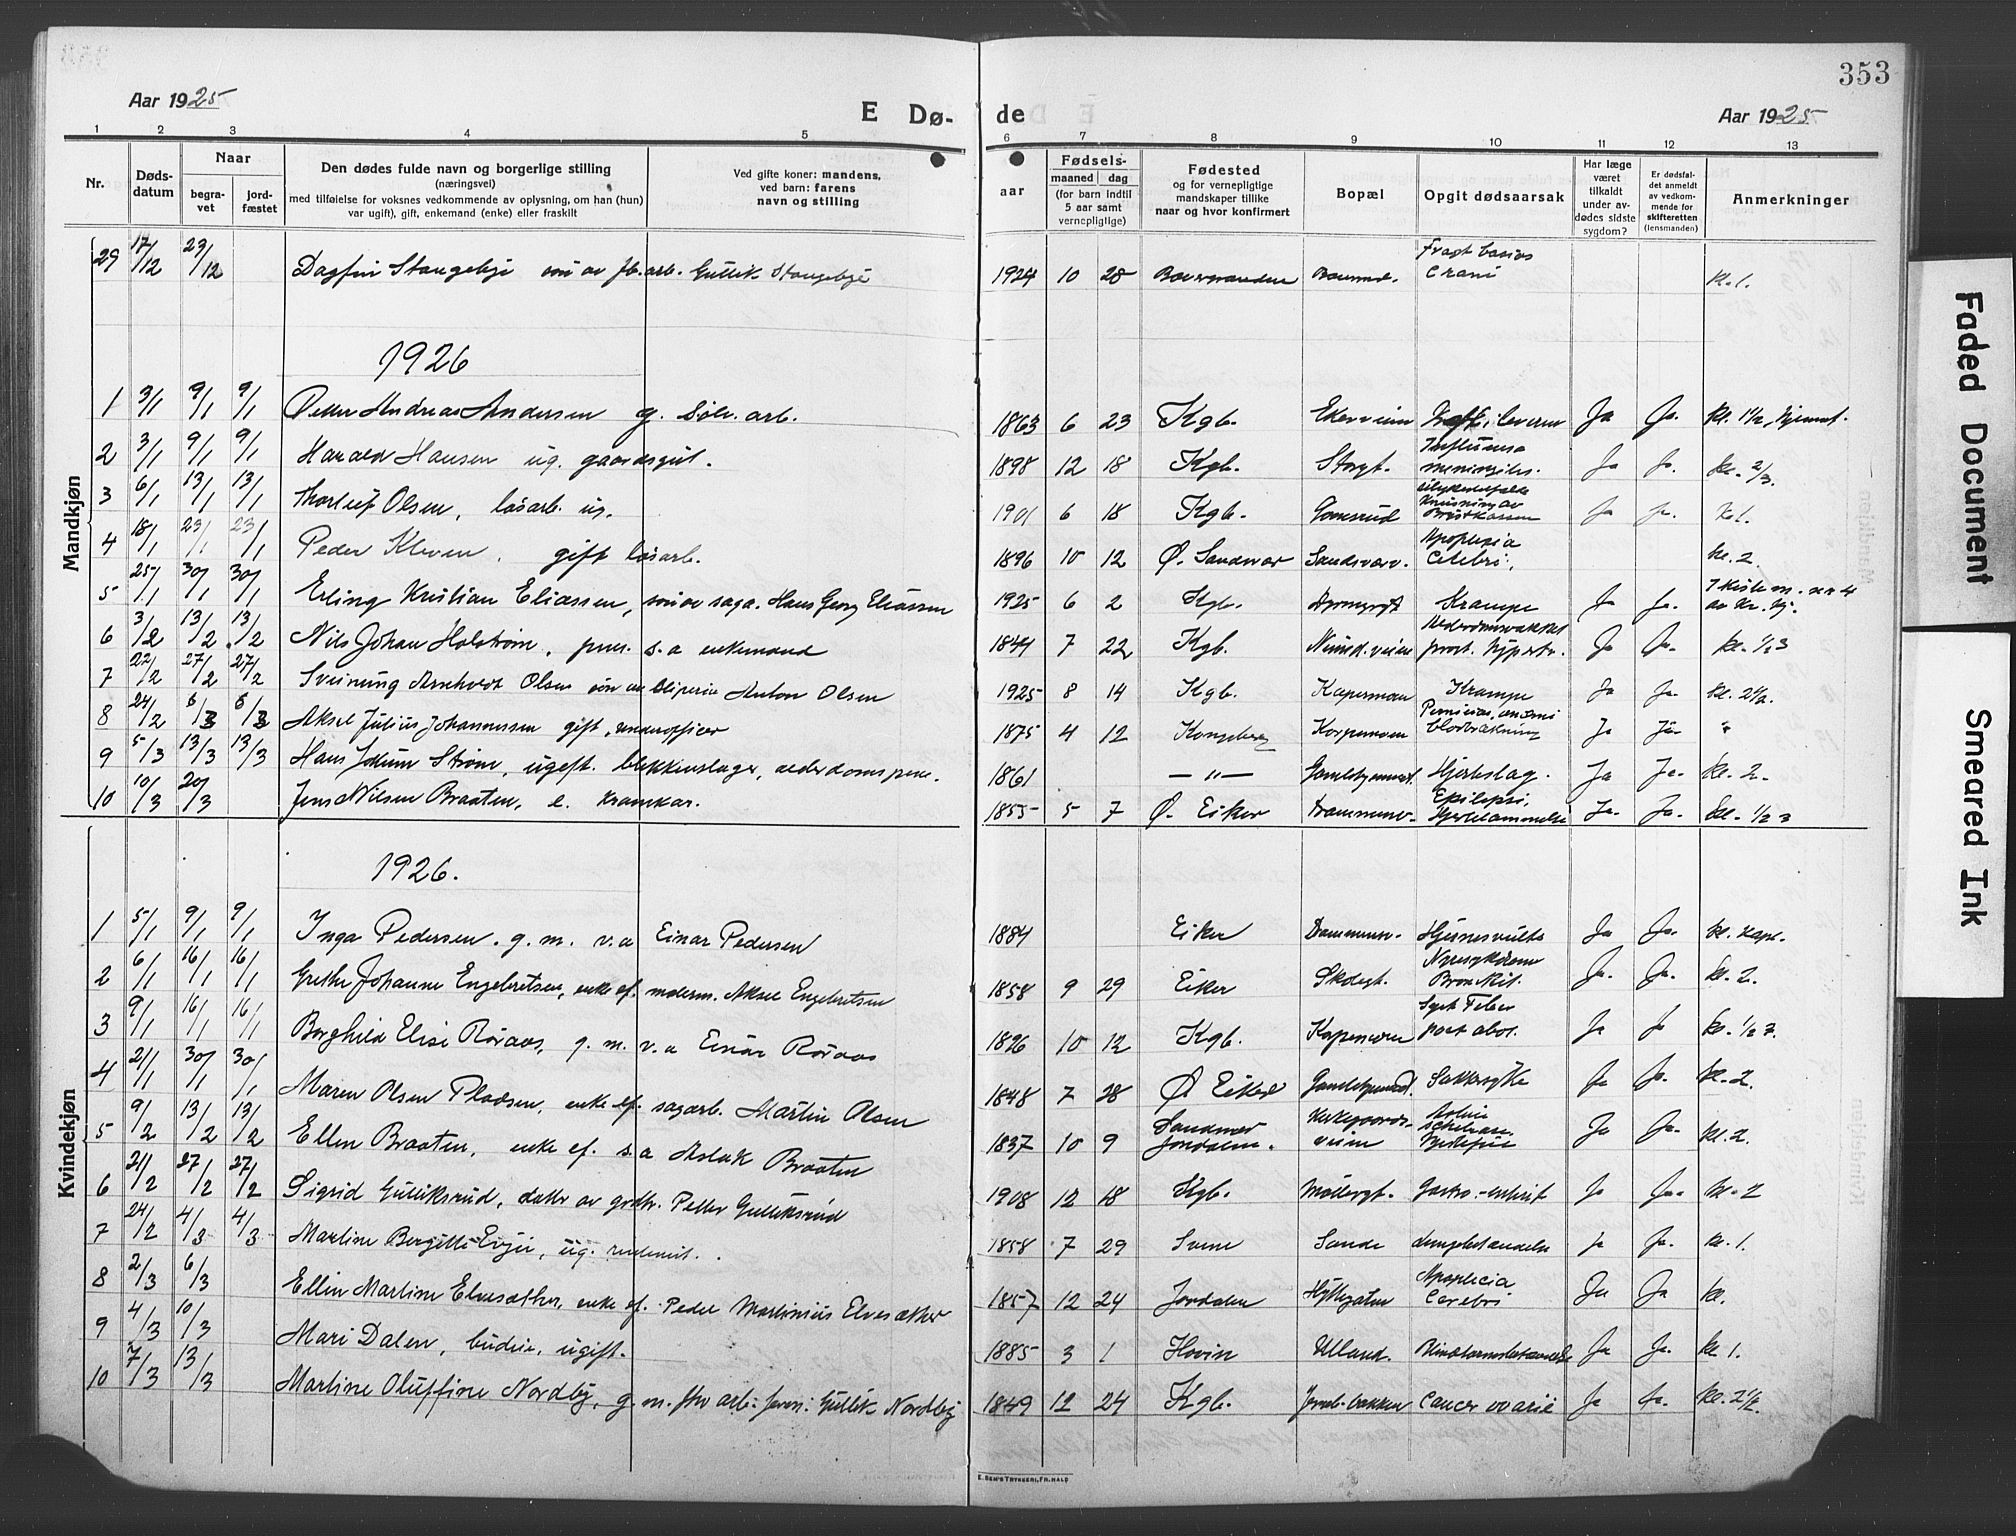 353
Aar 1925
E Dø-
de
Aar 1925
1 2 3 4 5 6 7 8 9 10 11 12 13
Nr.
Døds-
datum
Naar
begra-
vet
jord-
fæstet
Den dødes fulde navn og borgerlige stilling
(næringsvei)
med tilføielse for voksnes vedkommende av oplysning, om han (hun)
var ugift), gift, enkemand (enke) eller fraskilt
Ved gifte koner: mandens,
ved barn: farens
navn og stilling
Fødsels-
aar
maaned dag
(for barn indtil
5 aar samt
vernepligtige)
Fødested
og for vernepligtige
mandskaper tillike
naar og hvor konfirmert
Bopæl
Opgit dødsaarsak
Har læge
været
tilkaldt
under av-
dødes sidste
sygdom?
Er dødsfal-
det anmeldt
av vedkom-
mende for
skifteretten
(lensmanden)
Anmerkninger
Mandkjøn
29 17/12 23/12 Dagfin Stangebye søn av jb.arb. Gullik Stangebye 1924 10 28 Cranii kl.
1926
1 3/1 9/1 9/1 Petter Andreas Andersen g. Sølv. arb. 1863 6 23 Kgb. Ekerveien Ja Ja. kl. 1½,
2 3/1 9/1 9/1 Harald Hansen ug. gaardsgut. 1898 12 18 Kgb. Storgt. Influensa meningitis. Ja Ja. kl. 2/3.
3 6/1 13/1 13/1 Thorleif Olsen, løsarb. ug. 1901 6 18 Kgb. Gomsrud Ulykkestilfælde Knusning av Brystkassen Ja Ja. kl.
4 18/1 23/1 23/1 Peder Kleven. gift løsarb. 1896 10 12 Ø. Sandsvær Sandsværv. Apoplexia Cerebri. kl. 2.
5 25/1 30/1 30/1 Erling Kristian Eliassen, søn av saga. Hans Georg Eliassen 1925 6 2 Kgb. Krampe Ja Ja. I kiste m. nr 4 av kv. kj.
6 3/2 13/2 13/2 Nils Johan Holstrøm, pens. s.a enkemand 1841 7 22 Kgb. prost. hypertr. Ja Ja. kl. ½ 3
7 22/2 27/2 27/2 Sveinung Arnholdt Olsen søn av sliperiar. Anton Olsen 1925 8 14 Kgb. Krampe Ja Ja. kl. 2½.
8 24/2 6/3 6/3 Aksel Julius Johannessen gift, underofficer 1875 4 12 Kongsberg Pernicios. anæmi blodbrækning Ja Ja. "
9 5/3 13/3 13/3 Hans Jokum Strøm, ugift. blikkenslager, alderdomspens. 1861 — " — Hjerteslag. Ja Ja. kl. 2.
10 10/3 20/3 Jens Nilsen Braaten, e. 1855 5 7 Ø. Eiker Drammensv. Epilepsi, Hjertelammelse Ja. Ja. kl. ½ 3
Kvindekjøn
1926.
1 5/1 9/1 9/1 Inga Pedersen. g. m. v.a Einar Pedersen 1884 Eiker Drammensv. Hjernesvulst Ja Ja. kl. kapl.
2 6/1 16/1 16/1 Grethe Johanne Engebretsen, enke ef. malerm. Aksel Engebretsen 1858 9 29 Eiker Skolegt. Nyresykdom Bronkit. Ja. Ja. kl. 2.
3 9/1 16/1 16/1 Borghild Elise Røraas, g. m. v. a Einar Røraas 1896 10 12 Kgb. Sept. Feber post abor. Ja Ja kl. ½ 3.
4 21/1 30/1 30/1 Maren Olsen Pladsen, enke ef. sagarb. Martin Olsen 1848 7 28 Ø Eiker Sukkersyke Ja Ja. kl. 2.
5 9/2 13/2 13/2 Ellen Braaten, enke ef. s.a Aslak Braaten 1837 10 9 Sandsvær Jondalen. Kirkegaards-veien Ja Ja. kl. 2.
6 21/2 27/2 27/2 Sigrid Gulliksrud, datter av grdbr. Petter Gulliksrud 1908 12 18 Kgb. Møllergt. Gastro-enterit Ja Ja. kl. 2
7 24/2 4/3 4/3 Martine Bergitte Evju, ug. rentenist. 1858 7 29 Svene Sande Lungebetændelse Ja Ja. kl. 1.
8 2/3 6/3 Ellen Martine Elvesæther, enke ef. Peder Martinius Elvesæther 1857 12 24 Jondalen Hyttegaten Apoplecia Cerebri Ja Ja kl.
9 4/3 10/3 Mari Dalen, budeie, ugift. 1885 3 1 Hovin Ulland. Blindtarmsbetændelse Ja Ja. kl 1.
10 7/3 13/3 Martine Oluffine Nordby, g. m. fhv arb. Gullik Nordby 1849 12 24 Kgb. Cancer ovarie Ja Ja. kl. 2½.
E. SEM'S TRYKKERI, FR.HALD
Faded Document
Smeared Ink